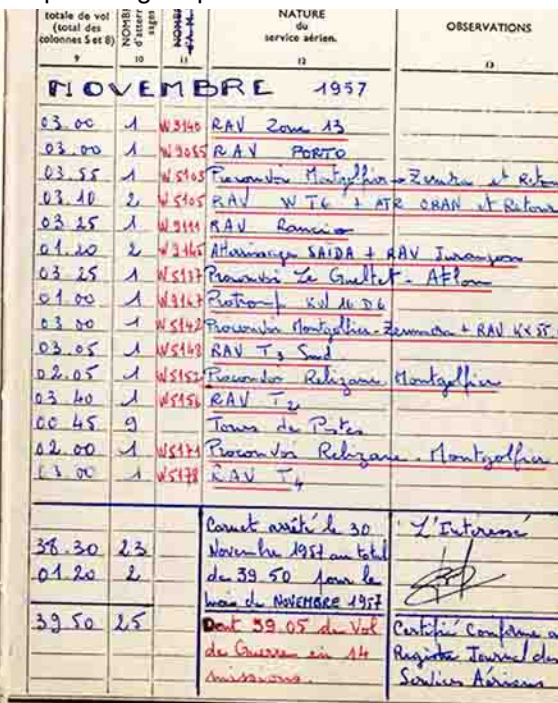 totale de vol
(total des
colonnes 5 et 8)
NOMBRE
d'atterris
sages
NOMBRE
NATURE
du
service aérien.
OBSERVATIONS
9 10 11 12 13
NOVEMBRE 1957
03.00 1 W3140 RAV Zone 13
03.00 1 W3085 RAV PORTO
03.55 1 W5103 Proconvoi Montgolfier - Zemora et Retour
03.10 2 W5105 RAV W T6 + ATR ORAN et Retour
03 25 1 W3111 RAV
01.20 2 Atterrissage SAÏDA + RAV Jurançon
03 25 1 W5137 Proconvoi Le Gueltet - Aflou
01.00 1 W3147 Protromp KW 16 D6
03 00 1 W5142 Proconvoi Montgolfier - Zemmora + RAV KX 55.
03.05 1 W5148 RAV T3 Sud
02.05 1 W5152 Proconvoi Relizane Montgolfier
03 40 1 W5156 RAV T2
00 45 9 Tours de Pistes
02.00 1 W5171 Proconvoi Relizane - Montgolfier
03.00 1 W5178 RAV T4
Carnet arrêté le 30
Novembre 1957 au total
de 39 50 pour le
mois de NOVEMBRE 1957
L'Intéressé
38.30 23
01.20 2
39 50 25
Dont 39.05 de Vol
de Guerre en 14
missions.
Certifié Conforme au
Registre Journal des
Sorties Aériennes